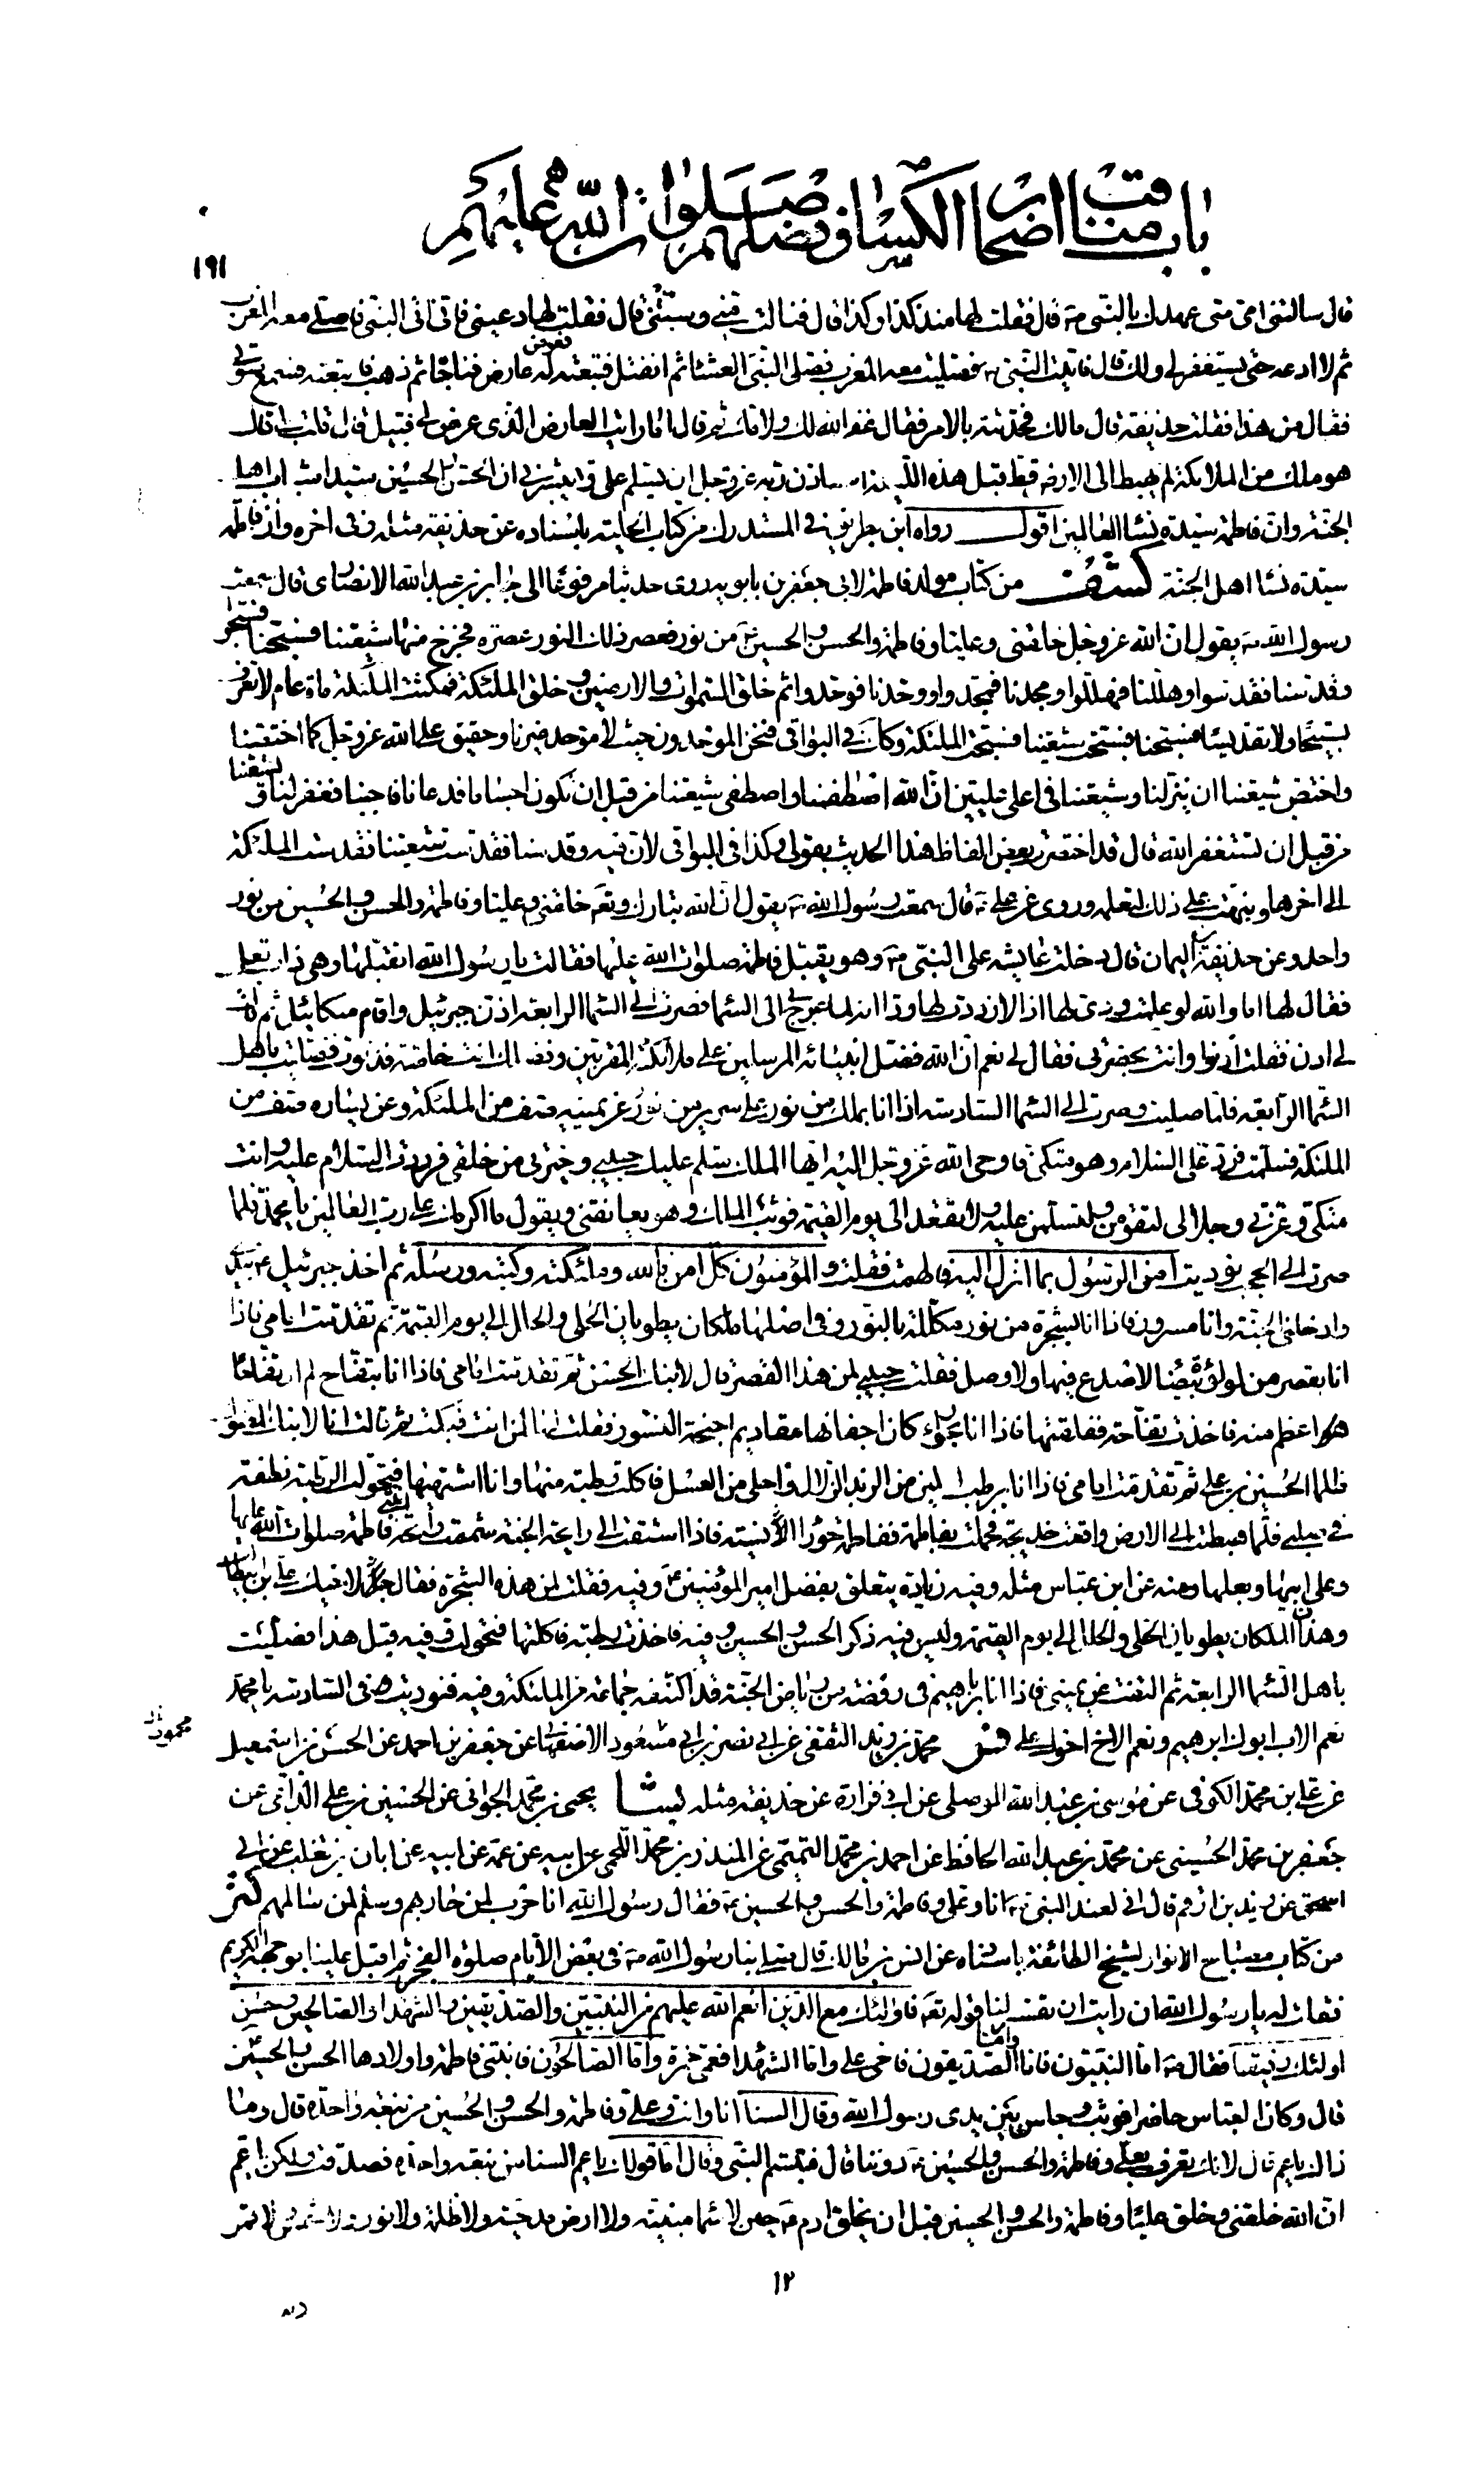 باب مناقب اصحاب الكساء وفضلهم صلوات الله عليهم
١٩١
قال سالتنى امى متى عهدك بالنبى ص قال فقلت لها منذ كذا وكذا قال فنالت منى وسبتنى قال فقلت لها دعينى فانى اتى النبى فاصلى معه المغرب
ثم لا ادعه حتى يستغفر لى ولك قال فاتيت النبى ص فصليت معه المغرب فصلى النبى العشاء ثم انفتل فتبعته فعرض له عارض فناجاه ثم ذهب فاتبعته فسمع صوتى
فقال من هذا فقلت حذيفة قال مالك فحدثته بالامر فقال غفر الله لك ولامك ثم قال اما رايت العارض الذى عرض لى قبيل قال قلت بلى قال
هو ملك من الملائكة لم يهبط الى الارض قط قبل هذه الليلة استاذن ربه عز وجل ان يسلم على ويبشرنى ان الحسن والحسين سيدا شباب اهل
الجنة وان فاطمة سيدة نساء العالمين اقول رواه ابن بطريق فى المستدرك من كتاب الحلية باسناده عن حذيفة مثله وفى اخره وان فاطمة
سيدة نساء اهل الجنة كشف من كتاب مولد فاطمة لابى جعفر بن بابويه روى حديثا مرفوعا الى جابر بن عبد الله الانصارى قال سمعت
رسول الله ص يقول ان الله عز وجل خلقنى وعليا وفاطمة والحسن والحسين من نور فعصر ذلك النور عصرة فخرج منها شيعتنا فسبحنا فسبحوا
وقدسنا فقدسوا وهللنا فهللوا ومجدنا فمجدوا ووحدنا فوحدوا ثم خلق السموات والارضين وخلق الملئكة فمكثت الملئكة مائة عام لا تعرف
تسبيحا ولا تقديسا فسبحنا فسبحت شيعتنا فسبحت الملئكة وكذا فى البواقى فنحن الموحدون حيث لا موحد غيرنا وحقيق على الله عز وجل كما اختصنا
واختص شيعتنا ان ينزلنا وشيعتنا فى اعلى عليين ان الله اصطفانا واصطفى شيعتنا من قبل ان نكون اجساما فدعانا فاجبنا فغفر لنا ولشيعتنا
من قبل ان نستغفر الله قال قد اختصرت بعض الفاظ هذا الحديث بقولى وكذا فى البواقى لان فيه وقدسنا فقدست شيعتنا فقدست الملئكة
الى اخرها ونبهت على ذلك لتعلم وروى عن على ع قال سمعت رسول الله ص يقول ان الله تبارك وتعم خلقنى وعليا وفاطمة والحسن والحسين من نور
واحد وعن حذيفة بن اليمان قال دخلت عايشة على النبى ص وهو يقبل فاطمة صلوات الله عليها فقالت يا رسول الله اتقبلها وهى ذات بعل
فقال لها اما والله لو علمت ودى لها اذا لازددت لها ودا انه لما عرج بى الى السماء فصرت الى السماء الرابعة اذن جبرئيل واقام ميكائيل ثم قال
لى ادن فقلت ادنو وانت بحضرتى فقال لى نعم ان الله فضل انبيائه المرسلين على ملائكته المقربين وفضلك انت خاصة فدنوت فصليت باهل
السماء الرابعة فلما صليت وصرت الى السماء السادسة اذا انا بملك من نور على سرير من نور عن يمينه صف من الملئكة وعن يساره صف من
الملئكة فسلمت فرد على السلام وهو متكئ فاوحى الله عز وجل اليه ايها الملك سلم عليك حبيبى وخيرتى من خلقى فرددت السلام عليه وانت
متكئ وعزتى وجلالى لتقومن ولتسلمن عليه ولا تقعد الى يوم القيمة فوثب الملك وهو يعانقنى ويقول ما اكرمك على رب العالمين يا محمد فلما
صرت الى الحجب نوديت امن الرسول بما انزل اليه فالهمت فقلت والمؤمنون كل امن بالله وملئكته وكتبه ورسله ثم اخذ جبرئيل ع بيدى
وادخلنى الجنة وانا مسرور فاذا انا بشجرة من نور مكللة بالنور وفى اصلها ملكان يطويان الحلى والحلل الى يوم القيمة ثم تقدمت امامى فاذا
انا بقصر من لؤلؤة بيضاء لا صدع فيها ولا وصل فقلت حبيبى لمن هذا القصر قال لابنك الحسن ثم تقدمت امامى فاذا انا بتفاح لم ار تفاحا
هو اعظم منه فاخذت تفاحة ففلقتها فاذا انا بحوراء كان اجفانها مقاديم اجنحة النسور فقلت لها لمن انت فبكت ثم قالت انا لابنك المقتول
ظلما الحسين بن على ثم تقدمت امامى فاذا انا برطب الين من الزبد الزلال واحلى من العسل فاكلت رطبة منها وانا اشتهيها فتحولت الرطبة نطفة
فى صلبى فلما هبطت الى الارض واقعت خديجة فحملت بفاطمة ففاطمة حوراء انسية فاذا اشتقت الى رايحة الجنة شممت رايحة ابنتى فاطمة صلوات الله عليها
وعلى ابيها وبعلها ومنه عن ابن عباس مثله وفيه زيادة يتعلق بفضل امير المؤمنين ع وفيه فقلت لمن هذه الشجرة فقال جبرئيل لاخيك على بن ابيطالب
وهذان الملكان يطويان الحلى والحلل الى يوم القيمة وليس فيه ذكر الحسن والحسين وفيه فاخذت رطبة فاكلتها فتحولت وفيه قبل هذا فصليت
باهل السماء الرابعة ثم التفت عن يمينى فاذا انا بابراهيم فى روضة من رياض الجنة قد اكتنفه جماعة من الملئكة وفيه فنوديت فى السادسة يا محمد
نعم الاب ابوك ابرهيم ونعم الاخ اخوك على
محمد بن زيد الثقفى عن ابى نصر بن ابى مسعود الاصفهانى عن جعفر بن احمد عن الحسن بن اسمعيل
عن على بن محمد الكوفى عن موسى بن عبد الله الموصلى عن ابى فزارة عن حذيفة مثله بشا يحيى بن محمد الجوانى عن الحسين بن على الداعى عن
جعفر بن محمد الحسينى عن محمد بن عبد الله الحافظ عن احمد بن محمد التميمى عن المنذر بن محمد اللخمى عن ابيه عن عمه عن ابيه عن ابان بن تغلب عن ابى
اسحق عن زيد بن ارقم قال انى لعند النبى ص انا وعلى وفاطمة والحسن والحسين ع فقال رسول الله انا حرب لمن حاربهم وسلم لمن سالمهم كنز
من كتاب مصباح الانوار لشيخ الطائفة باسناده عن انس بن مالك قال صلى بنا رسول الله ص فى بعض الايام صلوة الفجر ثم اقبل علينا بوجهه الكريم
فقلت له يا رسول الله ان رايت ان تفسر لنا قوله تعم فاولئك مع الذين انعم الله عليهم من النبيين والصديقين والشهداء والصالحين وحسن
اولئك رفيقا فقال ص اما النبيون فانا واما الصديقون فاخى على واما الشهداء فعمى حمزة واما الصالحون فابنتى فاطمة واولادها الحسن والحسين
قال وكان العباس حاضرا فوثب وجلس بين يدى رسول الله وقال السنا انا وانت وعلى وفاطمة والحسن والحسين من نبعة واحدة قال وما
ذاك يا عم قال لانك تعرف بعلى وفاطمة والحسن والحسين ع دوننا قال فتبسم النبى وقال اما قولك يا عم السنا من نبعة واحدة فصدقت ولكن يا عم
ان الله خلقنى وخلق عليا وفاطمة والحسن والحسين قبل ان يخلق ادم ع حين لا سماء مبنية ولا ارض مدحية ولا ظلمة ولا نور ولا شمس ولا قمر
١٢